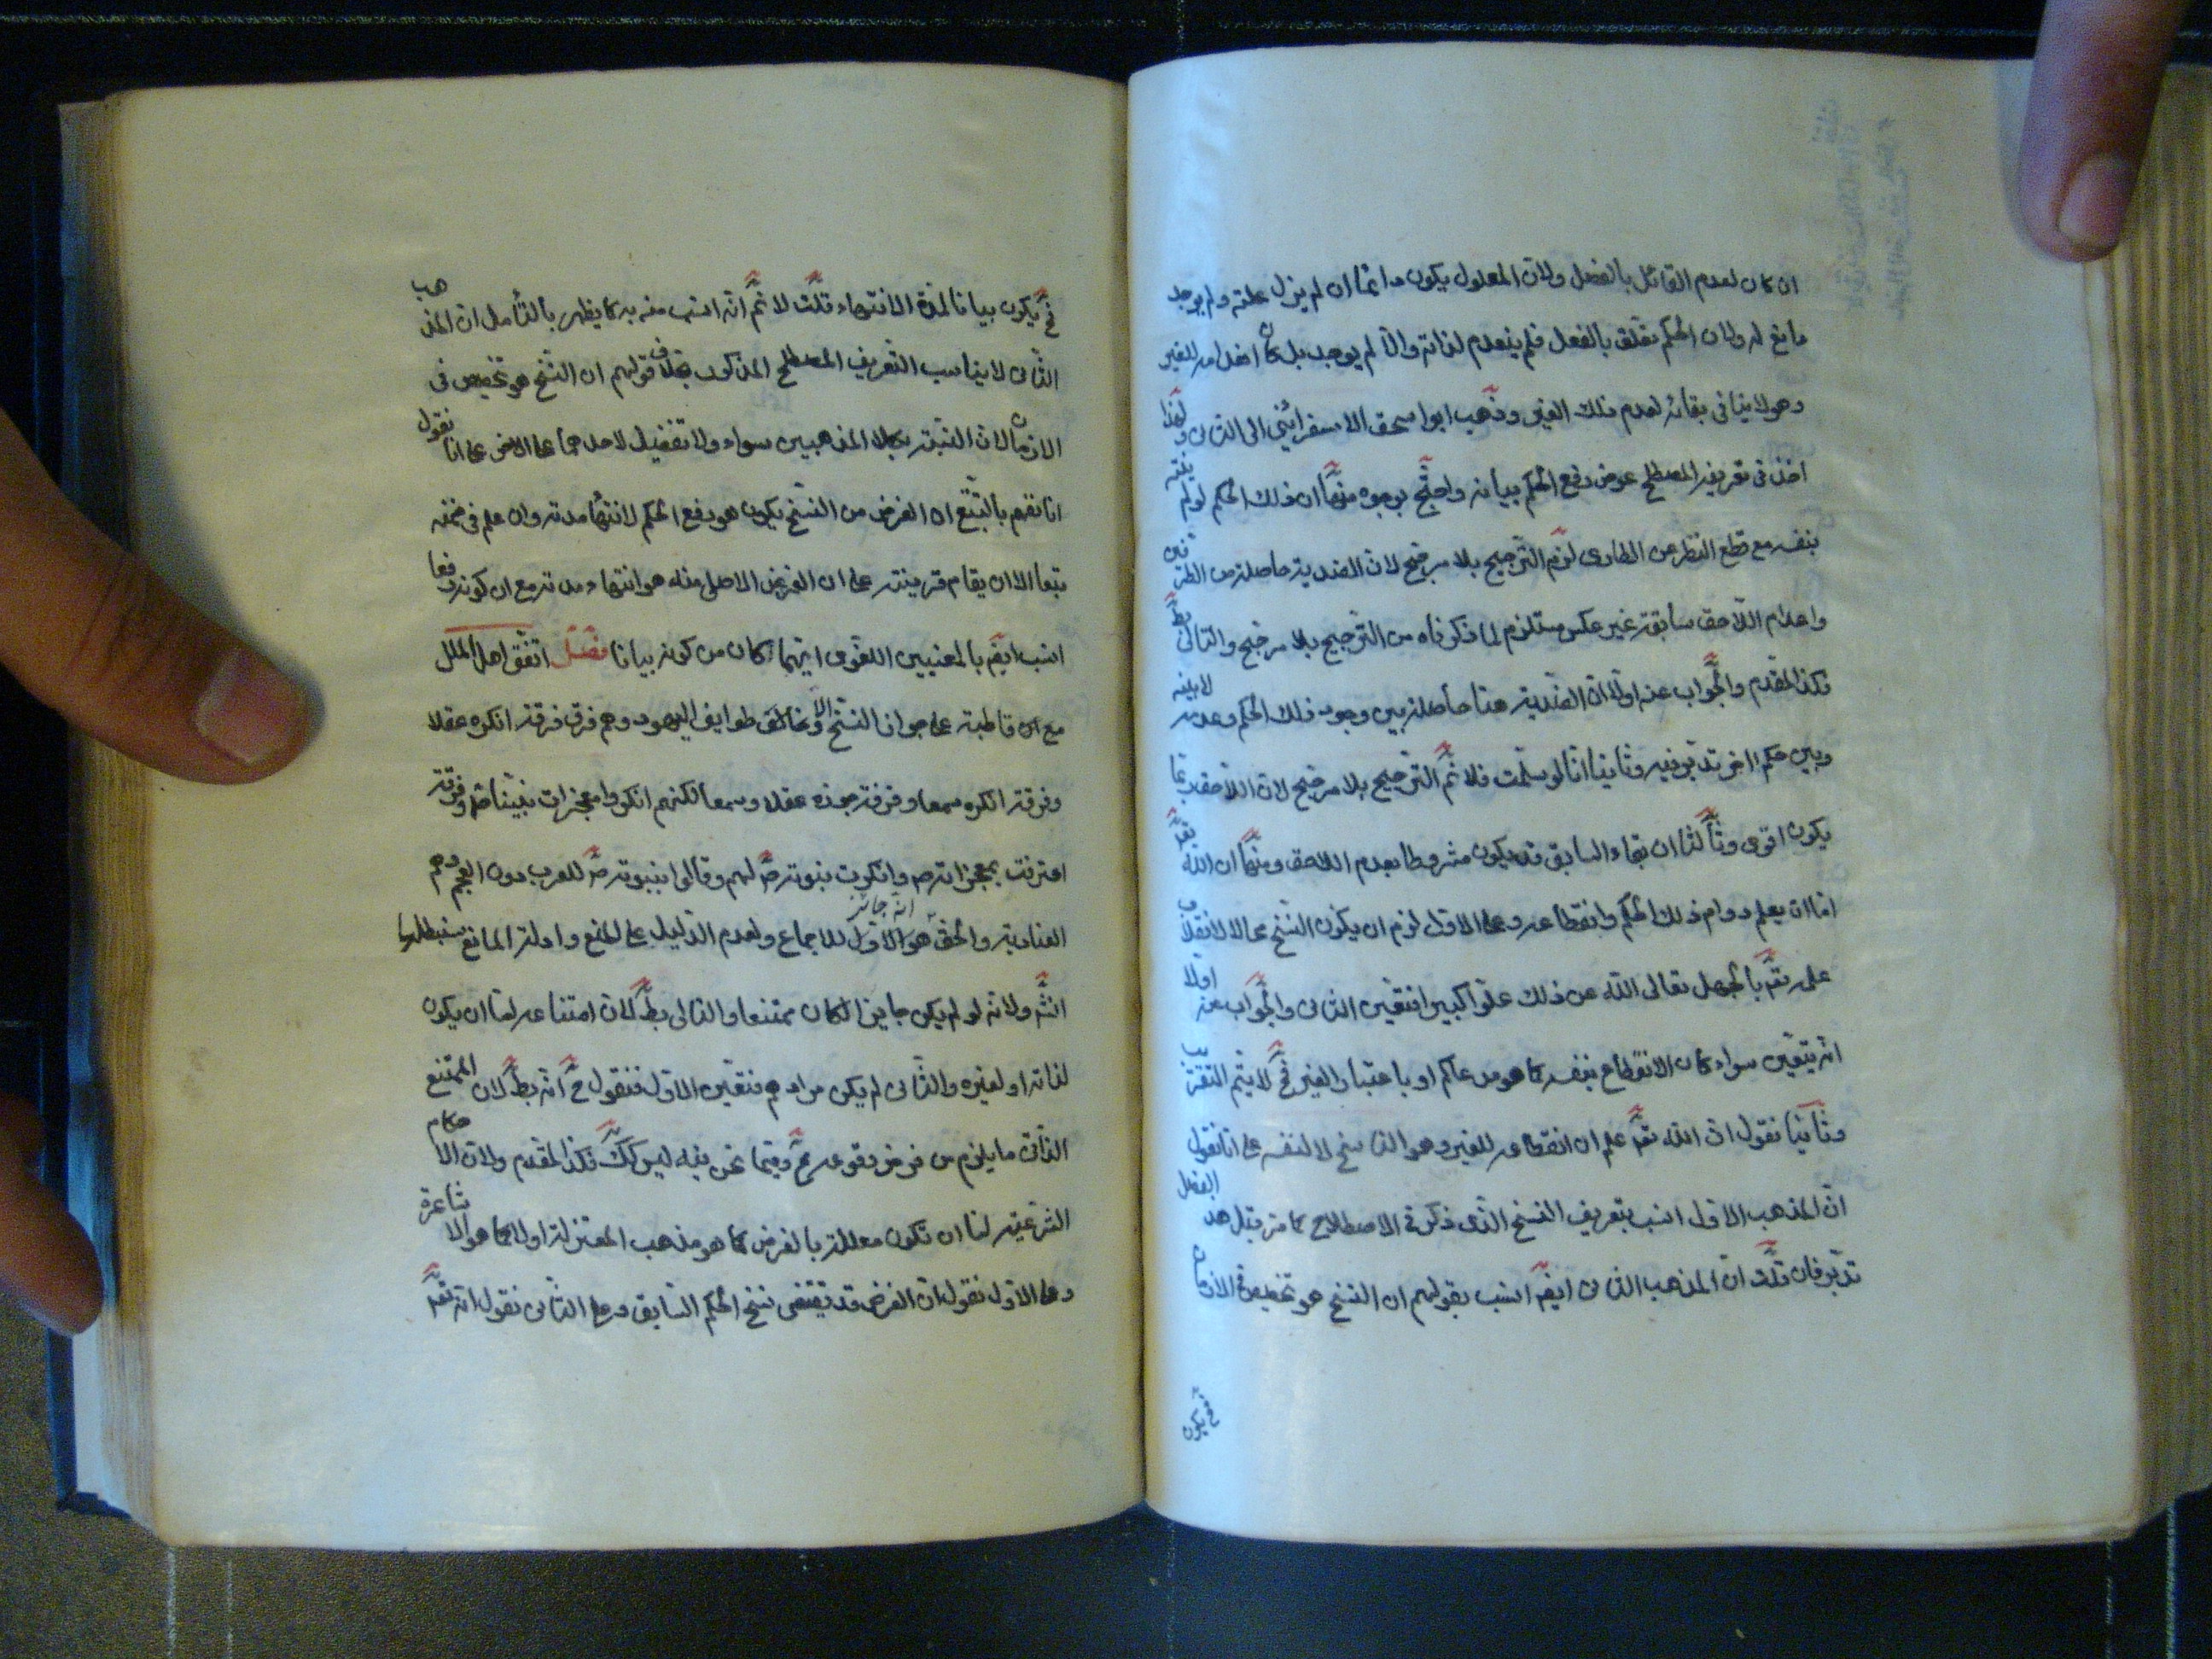 ان كان لعدم القائل بالفصل ولان المعلول يكون دائما ان لم يزل علته ولم يوجد
مانع له ولان الحكم تعلق بالفعل فلم ينعدم لذاته والا لم يوجد بل كان اعدامه للغير
وهو لا ينافى بقائه لعدم ذلك الغير وذهب ابو اسحق الاسفرائينى الى الثانى ولهذا
اخذ فى تعريفه المصطلح عوض رفع الحكم بيانه واحتج بوجوه منها ان ذلك الحكم لو لم ينته
بنفسه مع قطع النظر عن الطارى لزم الترجيح بلا مرجح لان الضدية حاصلة من الطرفين
واعدام اللاحق سابقه غير عكس مستلزم لما ذكرناه من الترجيح بلا مرجح والتالى بط
فكذا المقدم والجواب عنه اولا ان الضدية هنا حاصلة بين وجود ذلك الحكم وعدمه لا بينه
وبين حكم اخر تدبر فيه وثانيا انا لو سلمت فلا نم الترجيح بلا مرجح لان اللاحق ربما
يكون اقوى وثالثا ان بقاء السابق قد يكون مشروطا بعدم اللاحق ومنها ان الله تعّ
اما ان يعلم دوام ذلك الحكم وانقطاعه وعلى الاول لزم ان يكون النسخ محالا لانقلاب
علمه تعّ بالجهل تعالى الله عن ذلك علوا كبيرا فتعين الثانى والجواب عنه اولا
انه يتعين سواء كان الانقطاع بنفسه كما هو مدعاكم او باعتبار الغير فح لا يتم التقريب
وثانيا نقول ان الله تعّ علم ان انقطاعه للغير وهو الناسخ لا لنفسه على انا نقول
ان المذهب الاول انسب بتعريف النسخ الذى ذكره فى الاصطلاح كما مر قبل هذا الفصل
تدبر فان قلت ان المذهب الثانى ايضا انسب بقولهم ان النسخ هو تخصيص فى الازمان
فح يكون
فح يكون بيانا لمدة الانتهاء قلت لا نم انه انسب منه به كما يظهر بالتأمل ان المذهب
الثانى لا يناسب التعريف المصطلح المذكور بخلاف قولهم ان النسخ هو تخصيص فى
الازمان لان النسبة بكلا المذهبين سواء ولا تفضيل لاحدهما على الاخر على انا نقول
انا نفهم بالتتبع ان الغرض من النسخ يكون هو رفع الحكم لا انتهاء مدته وان علم فى ضمنه
تبعا الا ان يقام قرينته على ان الغرض الاصلى منه هو انتهاء مدته مع ان كونه رفعا
انسب ايضا بالمعنيين اللغوى ايهما كان من كونه بيانا فصل اتفق اهل الملل
مع ان قاطبة على جواز النسخ والا وخالف طوايف اليهود وهم فرق فرقة انكره عقلا
وفرقة انكره سمعا وفرقة جوزه عقلا وسمعا لكنهم انكروا معجزات نبينا ص وفرقة
اعترفت بمعجزاته ص وانكرت بنبوته ص لهم وقالوا بنبوته ص للعرب دون العجم وهم
العنادية والحق هو الاول انه جائز للاجماع ولعدم الدليل على المنع وادلة المانع سنبطلها
انش ولانه لو لم يكن جايزا لكان ممتنعا والتالى بط لان امتناعه اما ان يكون
لذاته او لغيره والثانى لم يكن مرادهم فتعين الاول فنقول ح انه بط لان الممتنع
الذاتى ما يلزم من فرض وقوعه مح وفيما نحن فيه ليس كك فكذا المقدم ولان الاحكام
الشرعية اما ان تكون معللة بالغرض كما هو مذهب المعتزلة او لا كما هو الاشاعرة
وعلى الاول نقول ان الغرض قد يقتضى نسخ الحكم السابق وعلى الثانى نقول انه تعّ